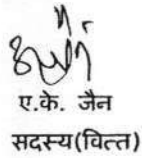 ए.के. जैन
सदस्य(वित्त)